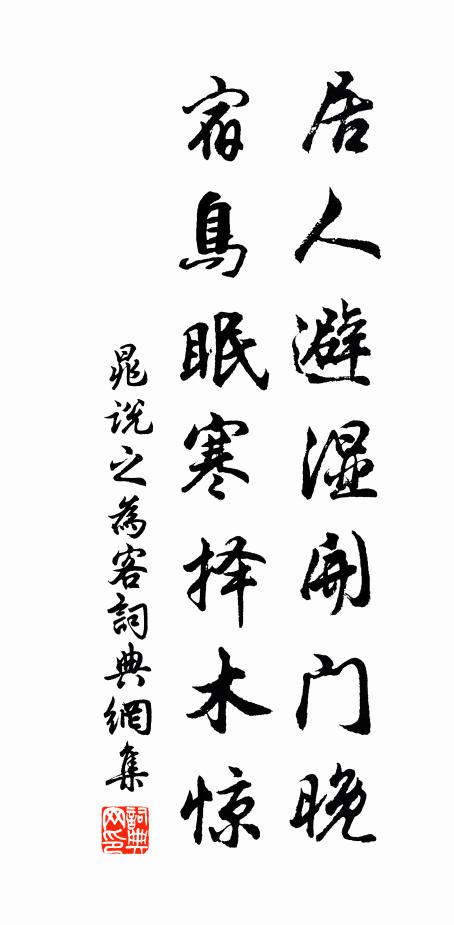 居人避湿開门晚
宿鳥眠寒择木惊
晁说之為客詞典網集
詞典网印